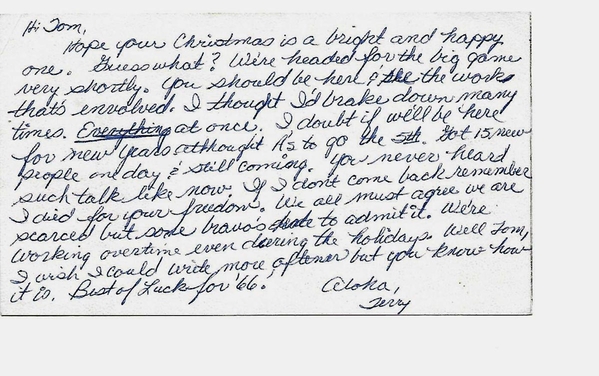 Hi Tom,
Hope your Christmas is a bright and happy
one. Guess what? We're headed for the big game
very shortly. You should be here & see the work
that's envolved. I thought I'd brake down many
times. Everything at once. I doubt if we'll be here
for new years althought it's to go the 5th. Got 15 new
people one day & still coming. You never heard
such talk like now. If I don't come back remember
I died for your freedom. We all must agree we are
scarced but some bravo's hate to admit it. We're
working overtime even during the holidays. Well Tom,
I wish I could write more oftener but you know how
it is. Best of Luck for '66.
Aloha,
Terry